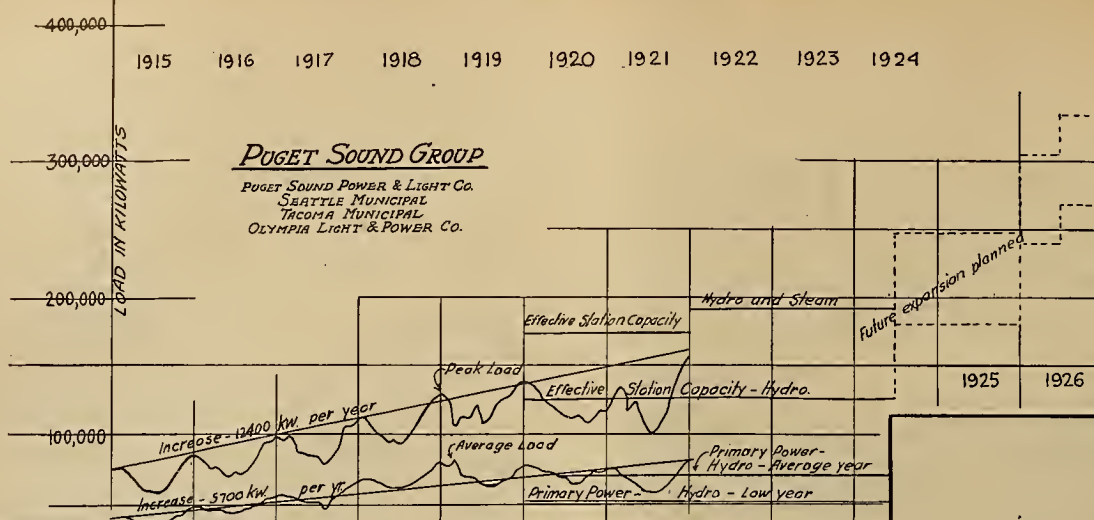 400,000
1915 1916 1917 1918 1919 1920 1921 1922 1923 1924
LOAD IN KILOWATTS
300,000
PUGET SOUND GROUP
PUGET SOUND POWER & LIGHT CO.
SEATTLE MUNICIPAL
TACOMA MUNICIPAL
OLYMPIA LIGHT & POWER CO.
Future expansion planned
200,000
Hydro and Steam
Effective Station Capacity
Peak Load
1925 1926
Effective Station Capacity - Hydro.
Increase - 12400 kw. per year
100,000
Average Load
Primary Power-
Hydro - Average year
Increase - 5700 kw. per yr.
Primary Power - Hydro - Low year